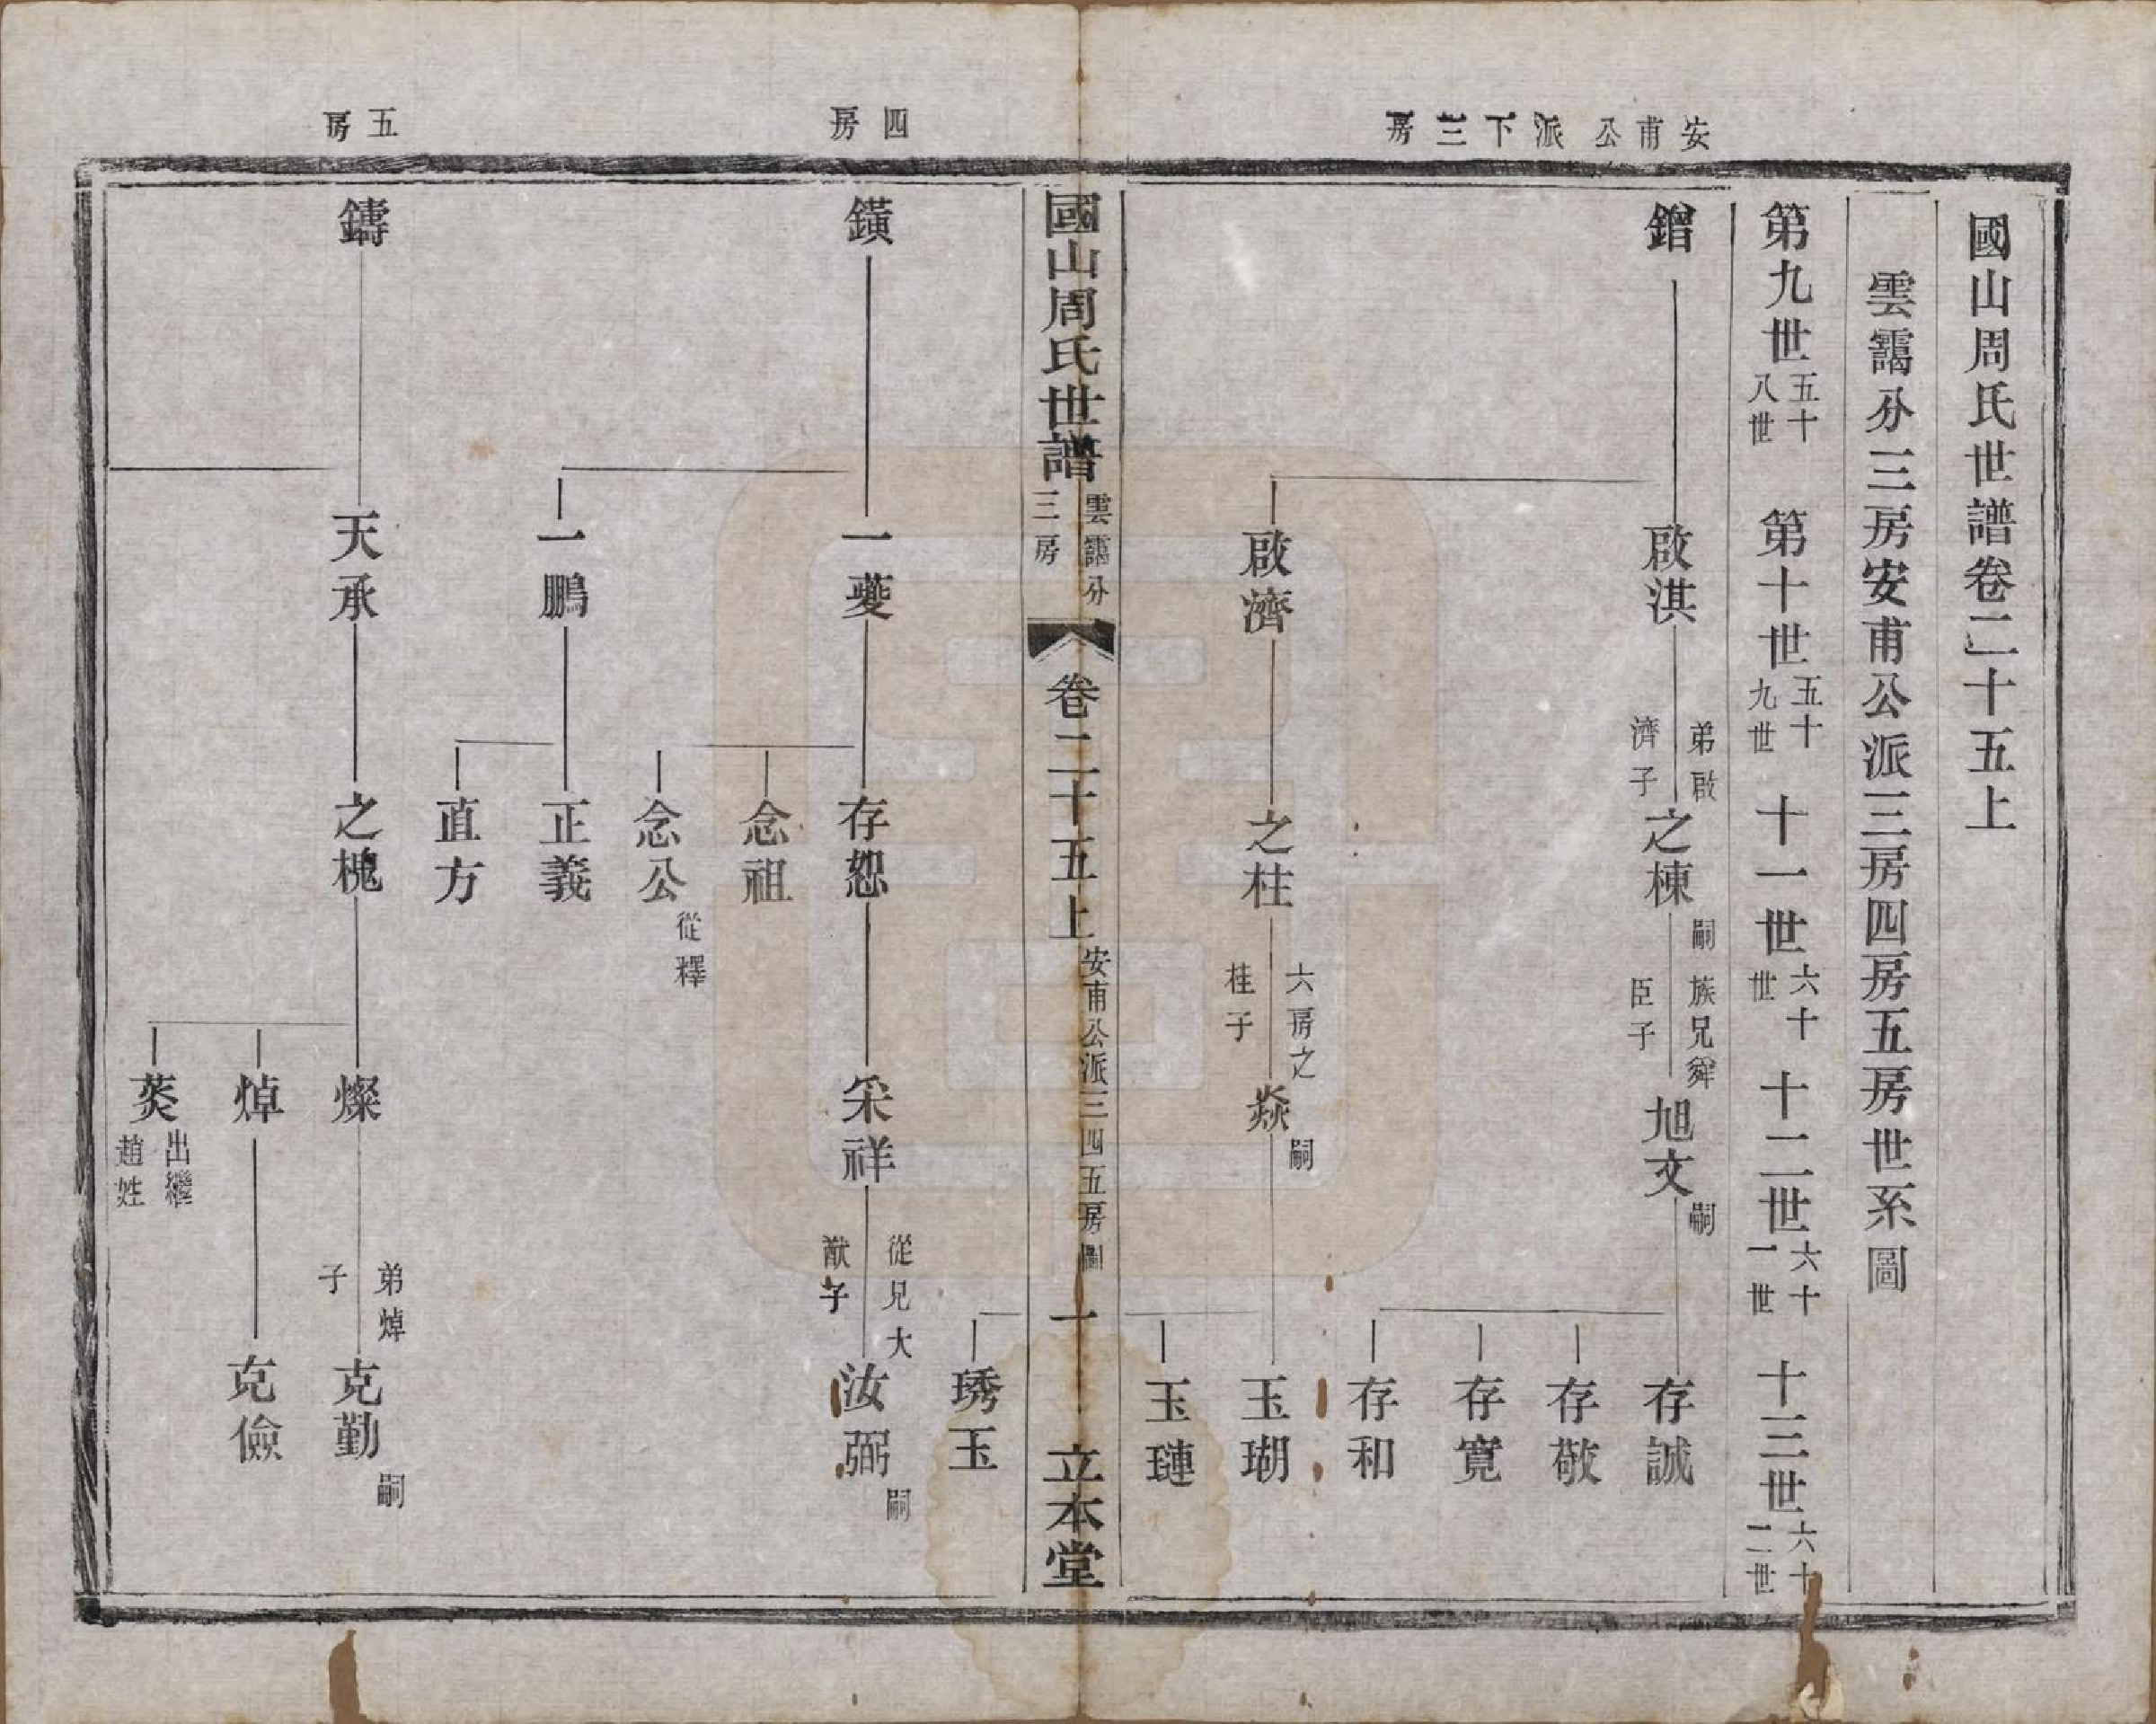 安甫公派下三房
國山周氏世譜卷二十五上
雲靄分三房安甫公派三房四房五房世系圖
第九世五十八世
第十世五十九世
十一世六十世
十二世六十一世
十三世六十二世
鏳
啟淇
弟啟濟子
之棟
嗣
族兄舜臣子
旭文
嗣
存誠
存敬
存寬
存和
啟濟
之柱
六房之桂子
焱
嗣
玉瑚
玉璉
國山周氏世譜
雲靄分三房
卷二十五上
安甫公派三四五房圖
一
立本堂
琇玉
四房
鐄
一夔
存恕
采祥
從兄大猷子
汝弼
嗣
念祖
念公
從釋
一鵬
正義
直方
五房
鑄
天承
之槐
燦
弟焯子
克勤
嗣
焯
克儉
焱
出繼趙姓